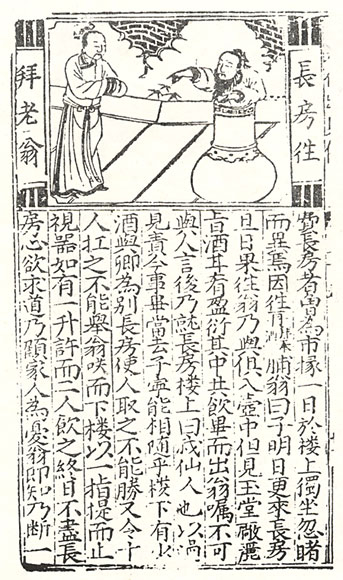 長房往
拜老翁
費長房者曽為市掾一日於樓上獨坐忽睹
而異焉因往脯翁曰子明日更來長房
旦日果往翁乃與俱入壺中但見玉堂嚴麗
旨酒甘肴盈衍其中共飲畢而出翁嘱不可
與人言後乃就長房楼上曰我仙人也以過
見責公事畢當去子寧能相隨乎楼下有少
酒與卿為別長房使人取之不能勝又令十
人扛之不能舉翁咲而下楼以一指提而止
視器如有一升許而二人飲之終日不盡長
房心欲求道乃顧家人為憂翁即知乃断一